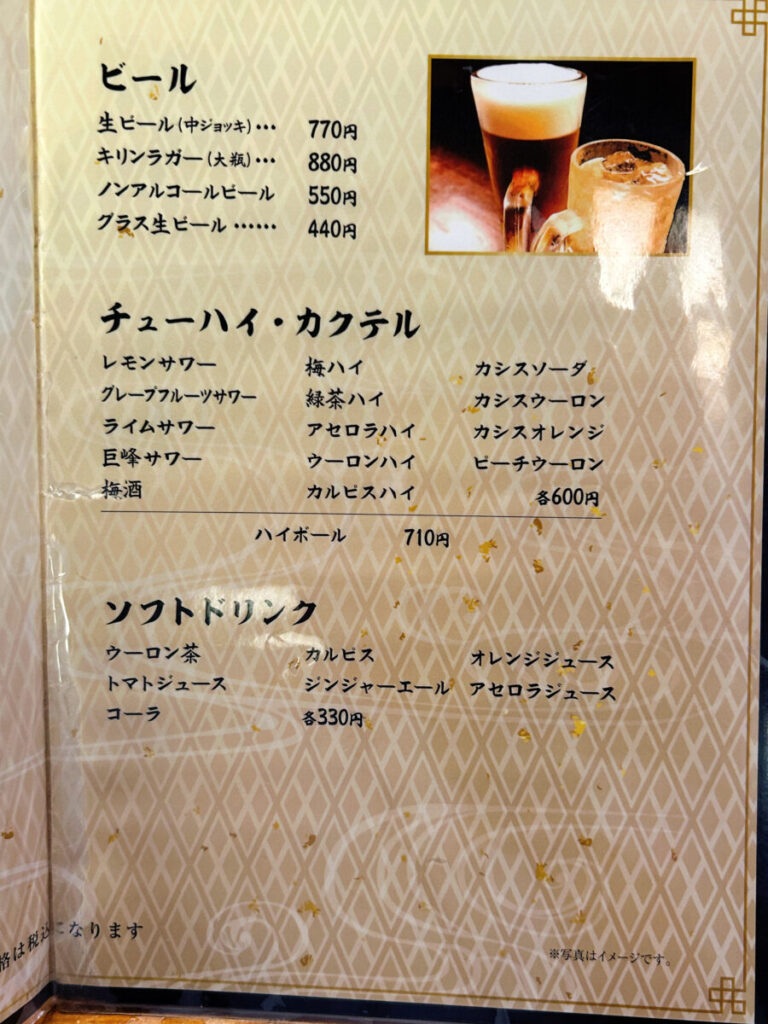 ビール
生ビール(中ジョッキ)… 770円
キリンラガー(大瓶)… 880円
ノンアルコールビール 550円
グラス生ビール…… 440円
チューハイ・カクテル
レモンサワー 梅ハイ カシスソーダ
グレープフルーツサワー 緑茶ハイ カシスウーロン
ライムサワー アセロラハイ カシスオレンジ
巨峰サワー ウーロンハイ ピーチウーロン
梅酒 カルピスハイ 各600円
ハイボール 710円
ソフトドリンク
ウーロン茶 カルピス オレンジジュース
トマトジュース ジンジャーエール アセロラジュース
コーラ 各330円
格は税込になります
※写真はイメージです。